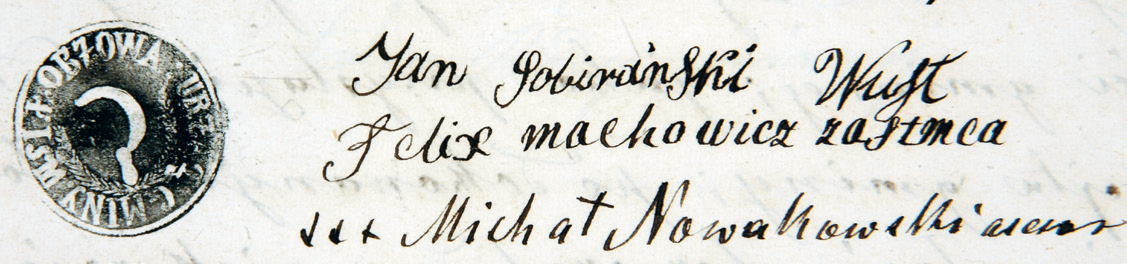 GMINY WSI ŁOBZOWA
Jan Sobirański Wujt
Felix machowicz zastmca
+++ Michał Nowakowski